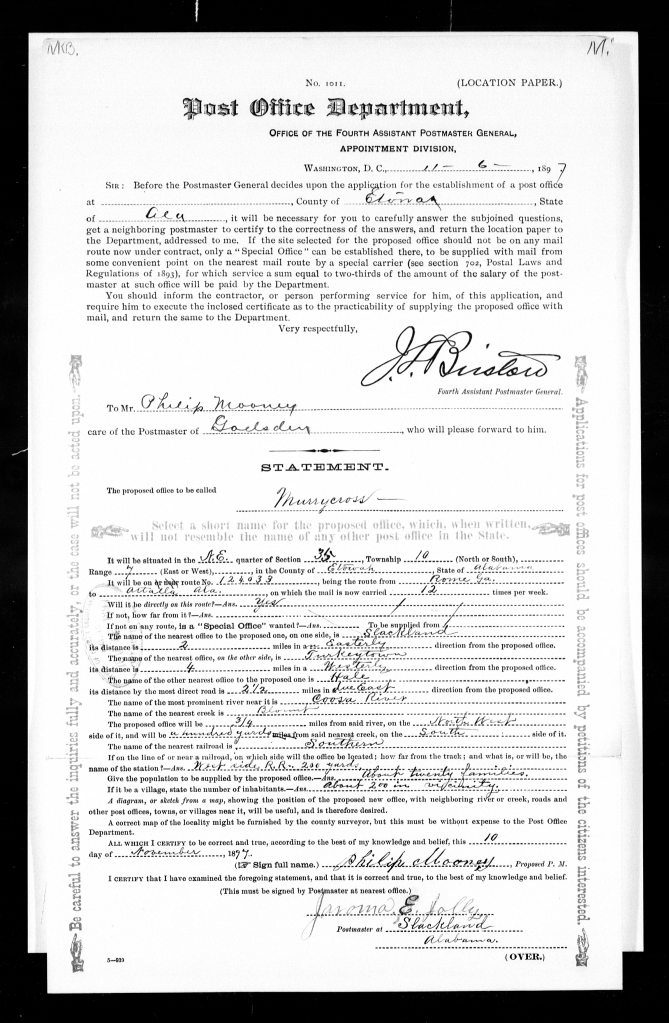 MKB.
M.
No. 1011.
(LOCATION PAPER.)
Post Office Department,
OFFICE OF THE FOURTH ASSISTANT POSTMASTER GENERAL,
APPOINTMENT DIVISION,
WASHINGTON, D. C., 11 - 6 - , 1897
SIR: Before the Postmaster General decides upon the application for the establishment of a post office
at , County of Etowah , State
of Ala , it will be necessary for you to carefully answer the subjoined questions,
get a neighboring postmaster to certify to the correctness of the answers, and return the location paper to
the Department, addressed to me. If the site selected for the proposed office should not be on any mail
route now under contract, only a "Special Office" can be established there, to be supplied with mail from
some convenient point on the nearest mail route by a special carrier (see section 702, Postal Laws and
Regulations of 1893), for which service a sum equal to two-thirds of the amount of the salary of the post-
master at such office will be paid by the Department.
You should inform the contractor, or person performing service for him, of this application, and
require him to execute the inclosed certificate as to the practicability of supplying the proposed office with
mail, and return the same to the Department.
Very respectfully,
Fourth Assistant Postmaster General.
To Mr. Philip Mooney
care of the Postmaster of Gadsden , who will please forward to him.
STATEMENT.
The proposed office to be called Murrycross
Select a short name for the proposed office, which, when written,
will not resemble the name of any other post office in the State.
It will be situated in the N.E. quarter of Section 35, Township 10 (North or South),
Range 7 (East or West), in the County of Etowah, State of Alabama
It will be on or near route No. 124033, being the route from Rome Ga.
to Attalla, Ala. , on which the mail is now carried 12 times per week.
Will it be directly on this route?—Ans. Yes
If not, how far from it?—Ans.
If not on any route, is a "Special Office" wanted?—Ans. To be supplied from
The name of the nearest office to the proposed one, on one side, is Slackland
its distance is 2 miles in a n. Easterly direction from the proposed office.
The name of the nearest office, on the other side, is Turkeytown
its distance is 4 miles in a Westerly direction from the proposed office.
The name of the other nearest office to the proposed one is Hale
its distance by the most direct road is 2 1/2 miles in due East direction from the proposed office.
The name of the most prominent river near it is Coosa River
The name of the nearest creek is Blount
The proposed office will be 3/4 miles from said river, on the North West
side of it, and will be a hundred yards miles from said nearest creek, on the South side of it.
The name of the nearest railroad is Southern
If on the line of or near a railroad, on which side will the office be located; how far from the track; and what is, or will be, the
name of the station?—Ans. West side R.R. 200 yards
Give the population to be supplied by the proposed office.—Ans. About twenty families.
If it be a village, state the number of inhabitants.—Ans. about 200 in vicinity.
A diagram, or sketch from a map, showing the position of the proposed new office, with neighboring river or creek, roads and
other post offices, towns, or villages near it, will be useful, and is therefore desired.
A correct map of the locality might be furnished by the county surveyor, but this must be without expense to the Post Office
Department.
ALL WHICH I CERTIFY to be correct and true, according to the best of my knowledge and belief, this 10
day of November , 1897.
(☞ Sign full name.) Philip Mooney , Proposed P. M.
I CERTIFY that I have examined the foregoing statement, and that it is correct and true, to the best of my knowledge and belief.
(This must be signed by Postmaster at nearest office.)
Jaroma E. Jolly
Postmaster at Slackland
Alabama.
5—929
(OVER.)
Be careful to answer the inquiries fully and accurately, or the case will not be acted upon.
Applications for post offices should be accompanied by petitions of the citizens interested.